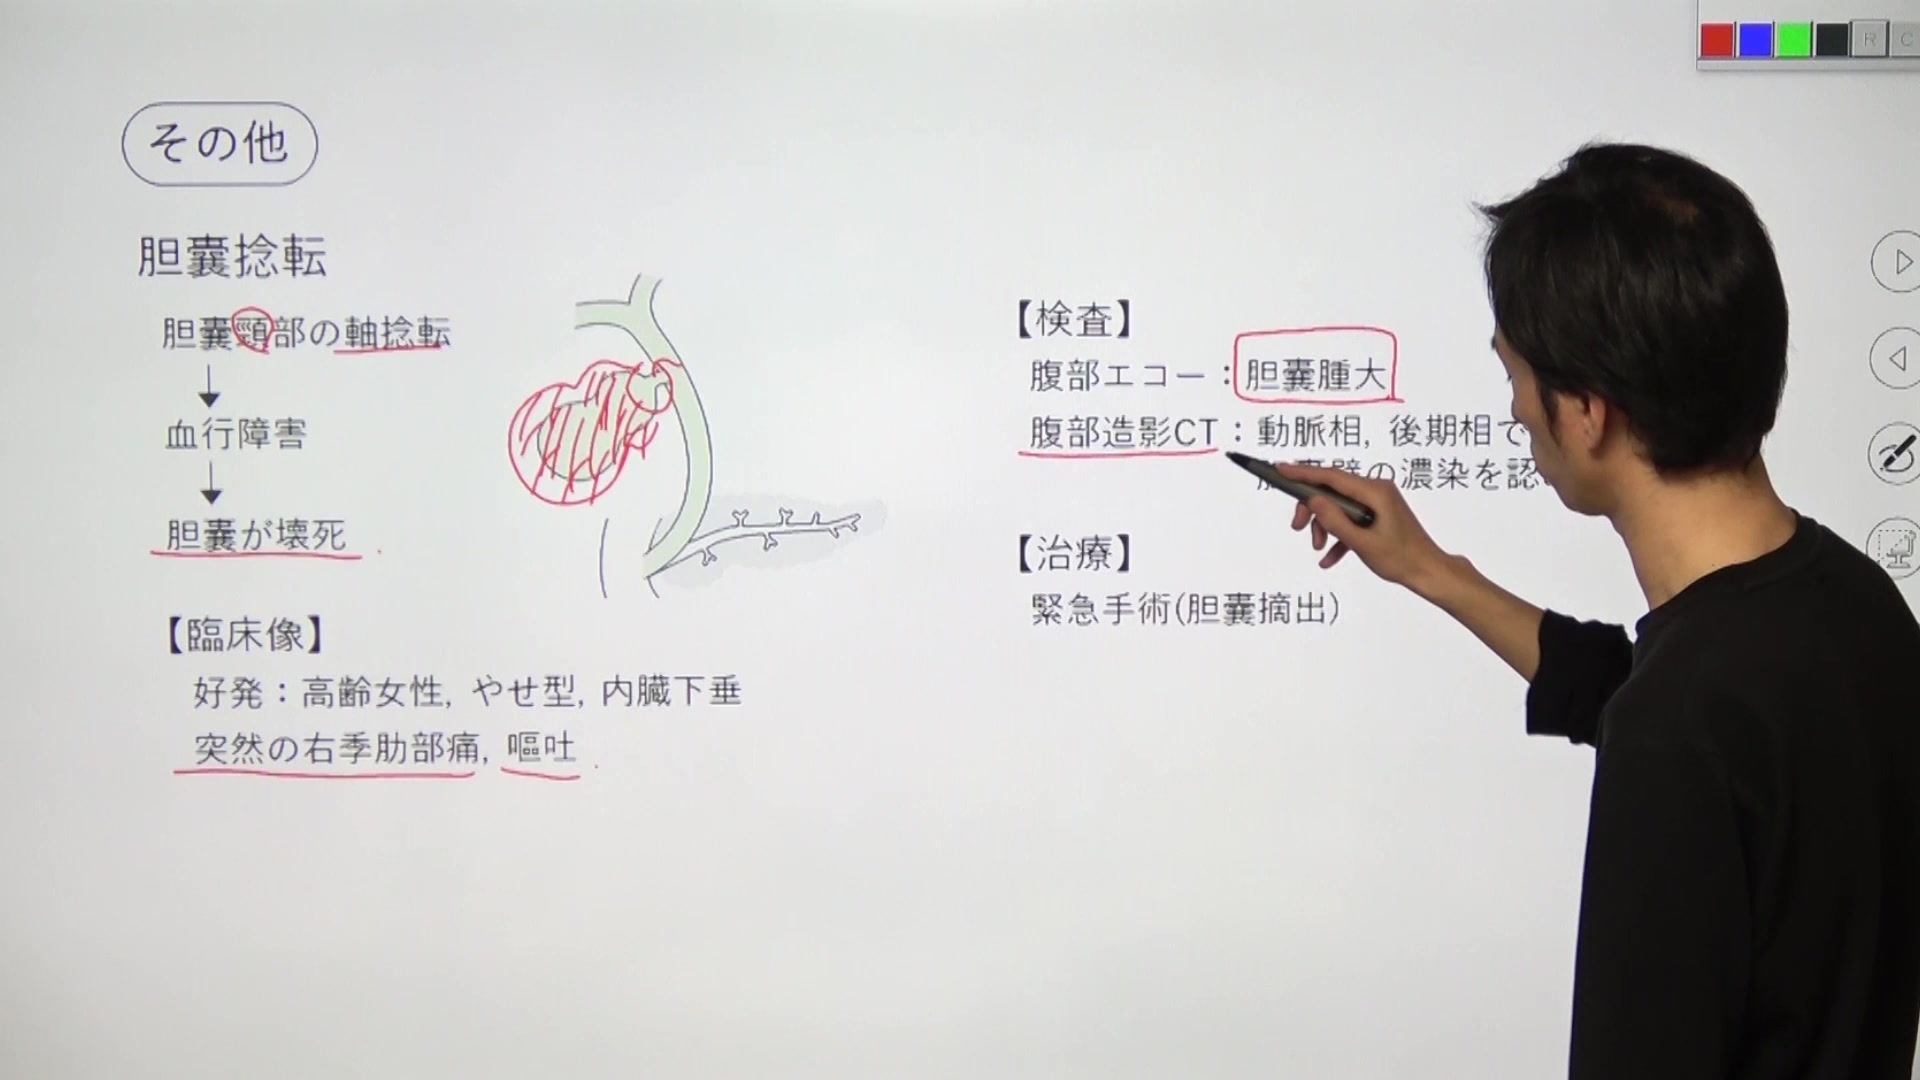 その他
胆嚢捻転
胆嚢頸部の軸捻転
血行障害
胆嚢が壊死
【臨床像】
好発：高齢女性, やせ型, 内臓下垂
突然の右季肋部痛, 嘔吐
【検査】
腹部エコー：胆嚢腫大
腹部造影CT：動脈相, 後期相で
壁の濃染を認
【治療】
緊急手術(胆嚢摘出)
R
C